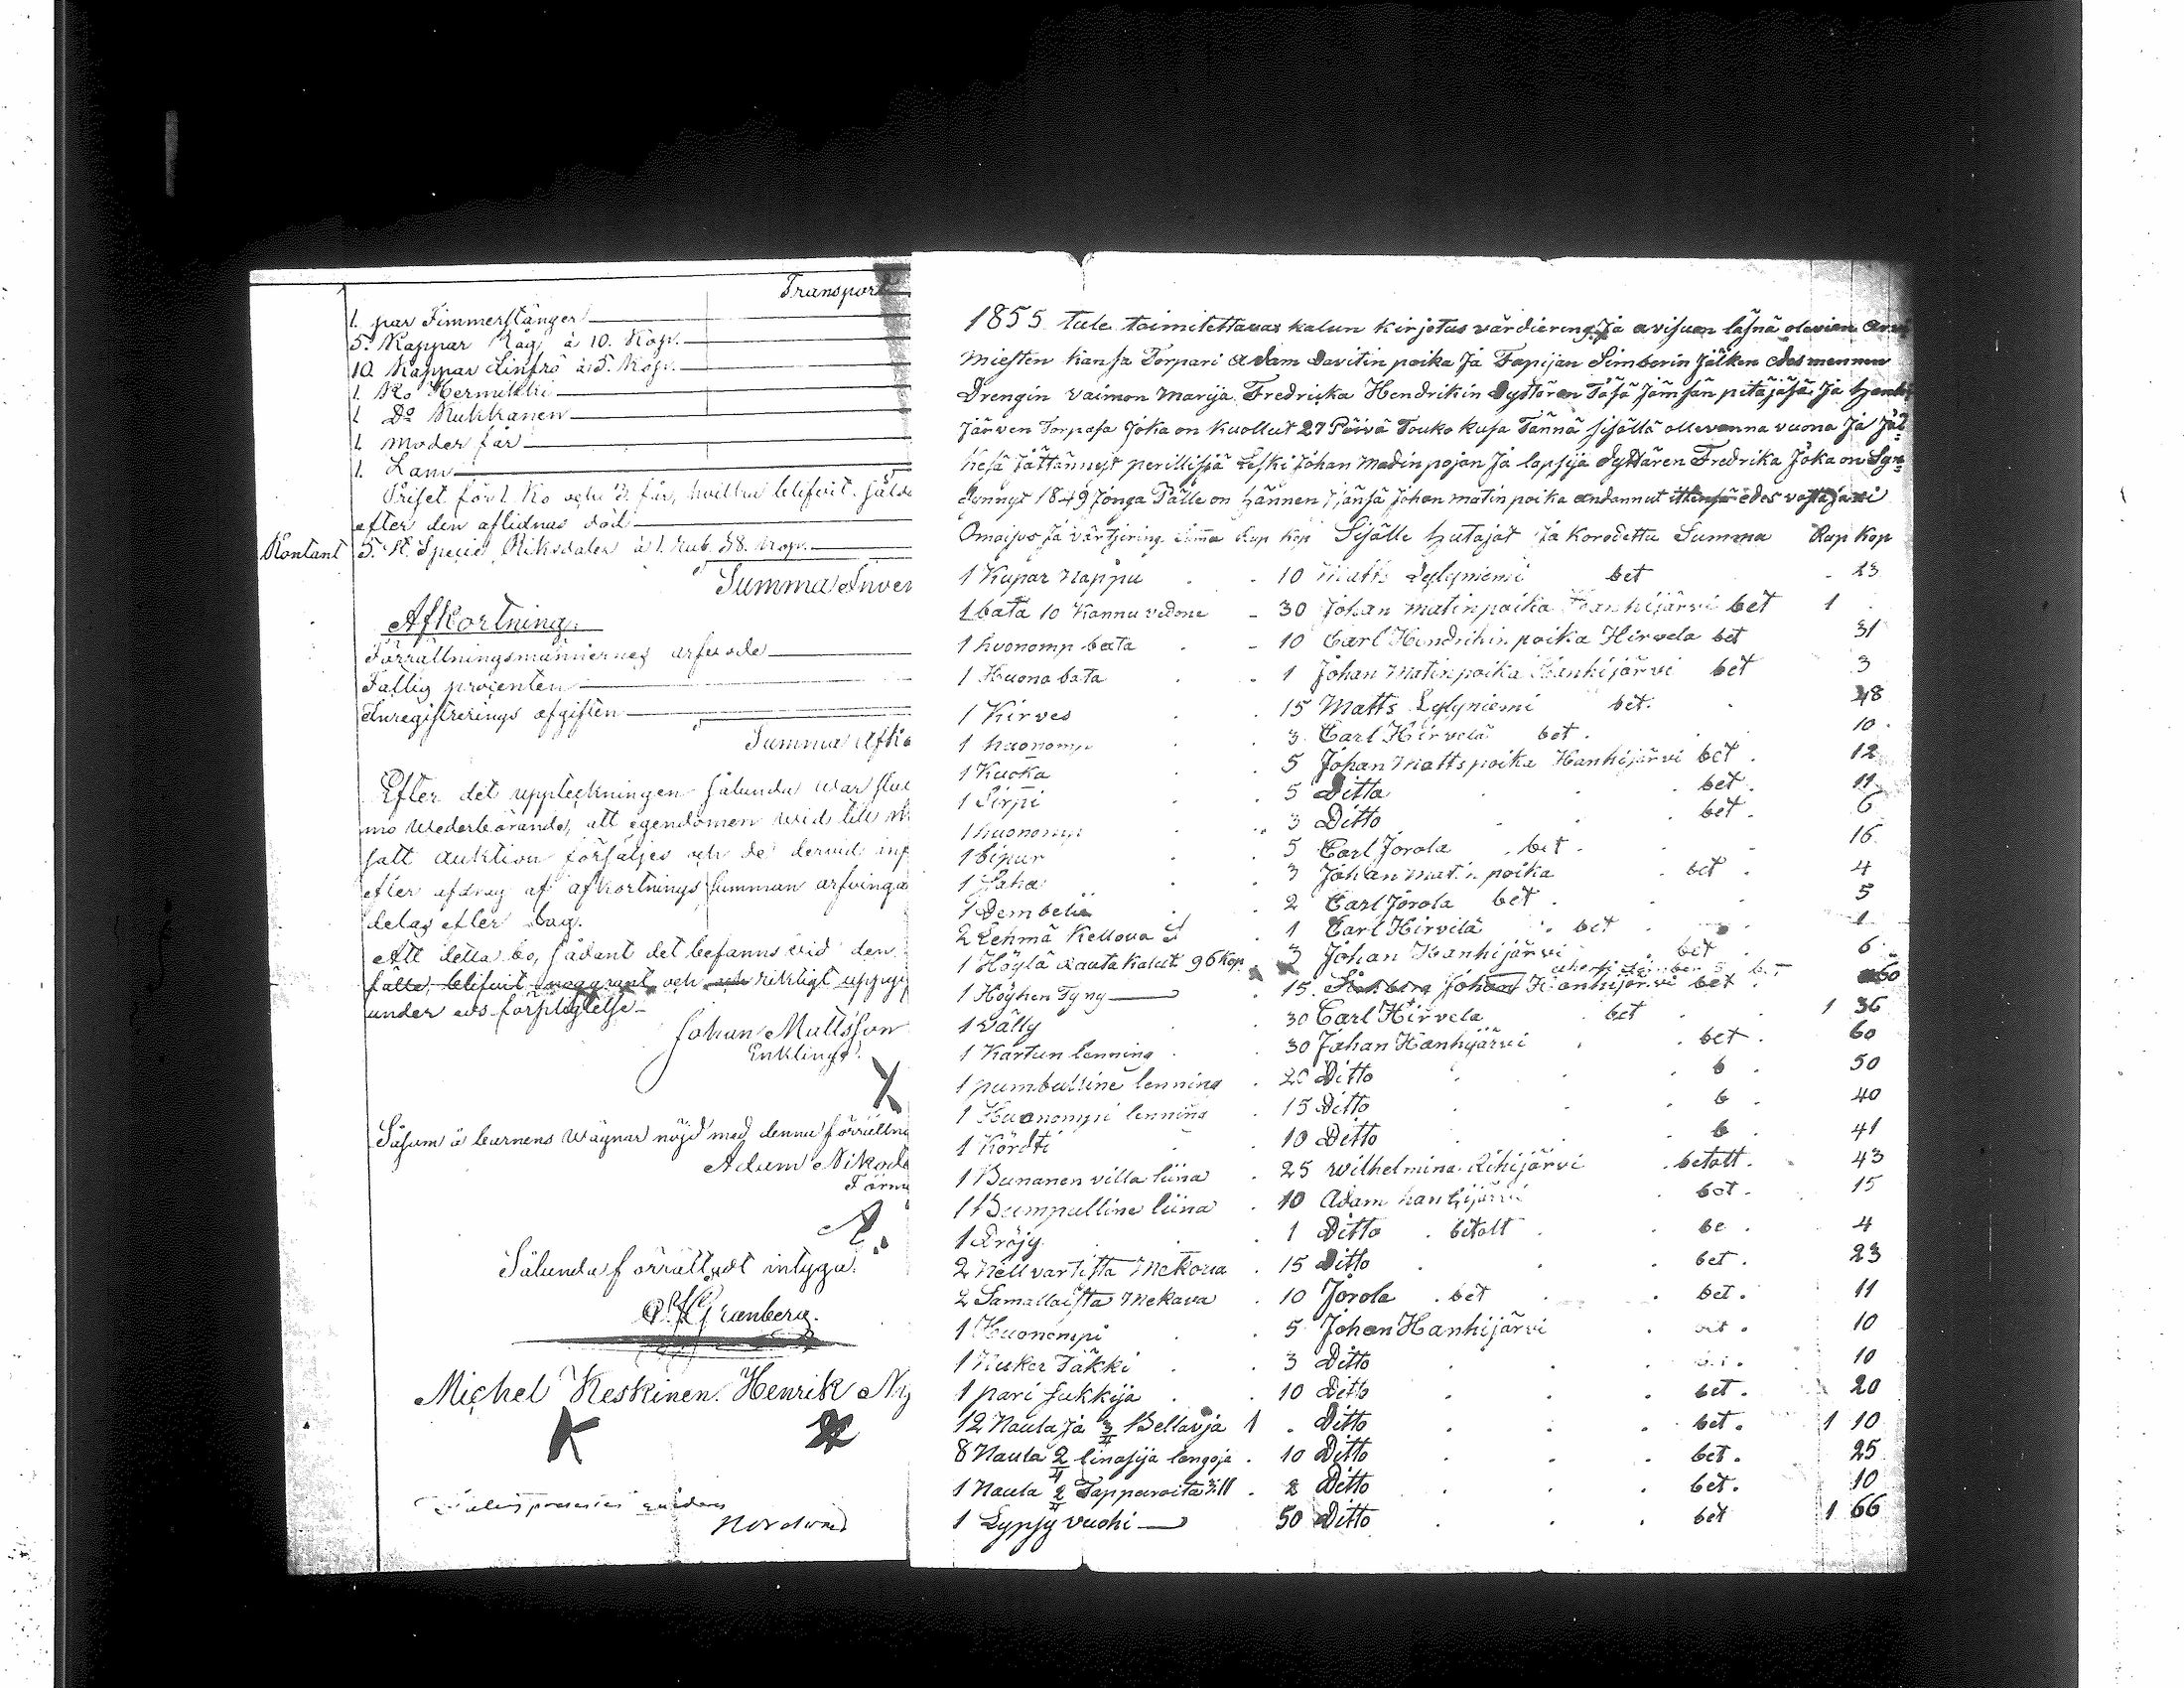 Transport
1. par Timmerstänger
5. Kappar Råg à 10. Kop.
10. Kappar Linfrö à 5. Kop.
1. Ko Hermikki
1 Do Kukkanen
1. Moder får
1. Lam
Priset för 1. Ko och 3. får, hvilka blifvit sålde
efter den aflidnas död
Kontant 5. St. Specie Riksdaler à 1. Rub. 58. Kop.
Summa Inven
Afkortning.
Förrättningsmännernes arfvode
Fattig procenten
Inregistrerings afgiften
Summa Afko
Efter det uppteckningen sålunda war slut
mo Wederbörande, att egendomen wid till
satt auktion försäljes och de dervid inf
efter afdrag af afkortnings summan arfvinga
delas efter Lag.
Att detta bo, sådant det befanns vid den
fälle, blifvit noggrant och riktigt uppgif
under eds förpligtelse
Johan Mattsson
Enkling.
Såsom å barnens wägnar nöjd med denna förrättni
Adam Nikode
Förm
Sålunda förrättadt intyga.
Granberg.
Michel Keskinen. Henrik Ny
K
1855 tule toimitettavax kalun kirjotus värdiering ja avisuon läsnä olevien arvi
miesten kansa Torpari Adam Davitin poika ja Tapijan Simberin jälken edesmennen
Drengin vaimon Marija Fredricka Hendrikin dyttären Täsä Jämsän pitäjäsä ja Hanhi
järven Torpasa joka on kuollut 27 Päivä Touko kusa Tännä sisällä ollevanna vuona ja jäl
kesä jättännyt perillisiä Leski Johan Madinpojan ja lapsija dyttären Fredrika joka on Syn
dynnyt 1849 jonga Pälle on hännen isänsä Johan matin poika andannut ittensä edes vastajaxi
Omaisus ja värtjering Rup Kop Sisälle hutajat ja korodettu Summa Rup Kop
1 Kupar nappu 10 Matts Lylyniemi bet 23
1 bata 10 Kannu vedone 30 Johan matinpoika Hanhijärvi bet 1
1 huonomp bata 10 Carl Hendrikin poika Hirvela bet 31
1 Huono bata 1 Johan Matinpoika Hanhijärvi bet 3
1 Kirves 15 Matts Lylyniemi bet. 48
1 huonomp 3 Carl Hirvelä bet. 10
1 Kuoka 5 Johan Mattspoika Hanhijärvi bet. 12
1 Sirpi 5 Ditto bet. 11
1 huonomp 3 Ditto bet. 6
1 bipur 5 Carl Jorola bet. 16
1 Saha 3 Johan Matin poika bet. 4
1 Dembeliu 2 Carl Jorola bet. 5
2 Lehmä Kellova 1 Carl Hirvilä bet 1
1 Höylä Rautakalut 96 Kop. 3 Johan Hanhijärvi bet. 6
1 Höyhen Tyny 15. Johan Hanhijärvi bet. 60
1 Välly 30 Carl Hirvela bet 1 36
1 Kartun lenning 30 Johan Hanhijärvi bet. 60
1 pumbulline lenning 20 Ditto b 50
1 Huonompi lenning 15 Ditto b 40
1 Körtti 10 Ditto b 41
1 Bunanen villa liina 25 Wilhelmina Rihijärvi betalt. 43
1 Bumpulline liina 10 Adam hanhijärvi bet. 15
1 Dröjy 1 Ditto betalt be. 4
2 Nell vartista Mekoua 15 Ditto bet. 23
2 Samallaista Mekava 10 Jorola bet bet. 11
1 Huonompi 5 Johan Hanhijärvi bet. 10
1 Nuker Täkki 3 Ditto 10
1 pari Sukkija 10 Ditto bet. 20
12 Naula ja 3/4 Bellavja 1 Ditto bet. 1 10
8 Naula 2/4 linasija langoja 10 Ditto bet. 25
1 Naula 2/4 Tappuroita 2 Ditto bet. 10
1 Lypsy vuohi 50 Ditto bet 1 66